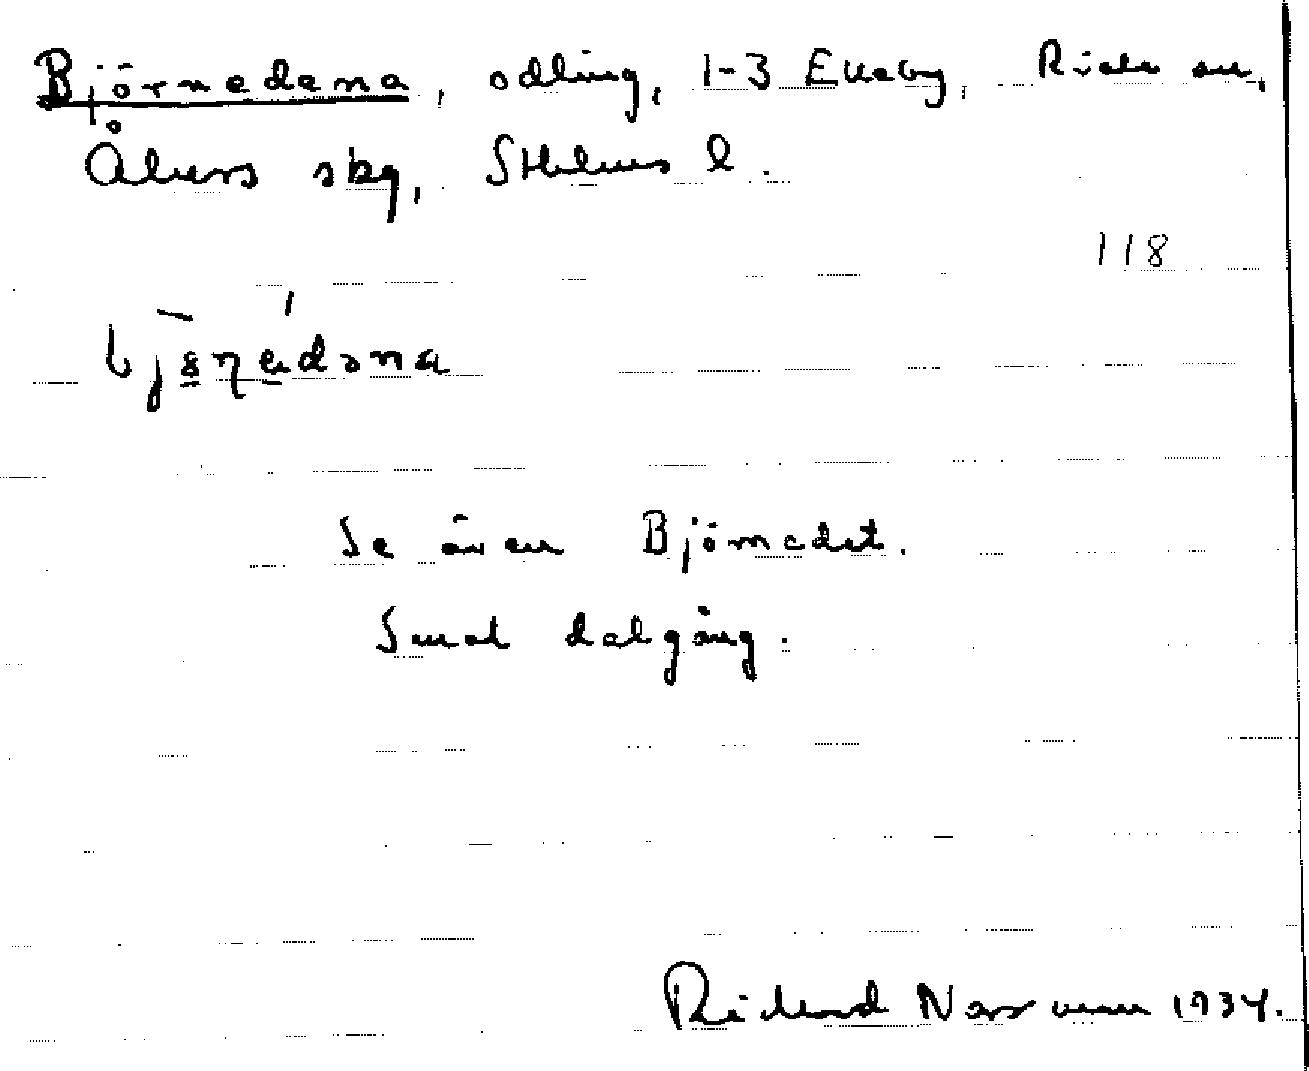 Björnedena, odling, 1-3 Ekeby, Riala sn,
Åkers skg, Sthlms l.
118
Se även Björnedet.
Smal dalgång.
Rickard Norrman 1934.